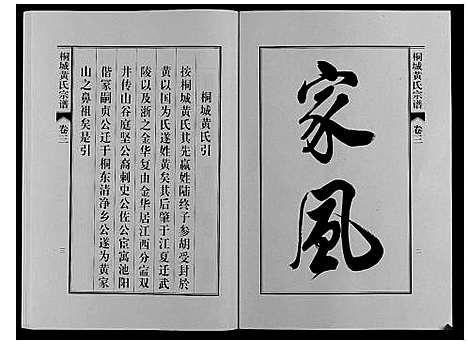 桐城黄氏宗谱
卷三
二
家风
桐城黄氏引
按桐城黄氏其先嬴姓陆终子参胡受封於
黄以国为氏遂姓黄矣其后肇于江夏迁武
陵以及浙之金华复由金华居江西分寍双
井传山谷庭坚公裔刺史公佐公宦寓池阳
偕冢嗣贞公迁于桐东清净乡公遂为黄家
山之鼻祖矣是引
桐城黄氏宗谱
卷三
三